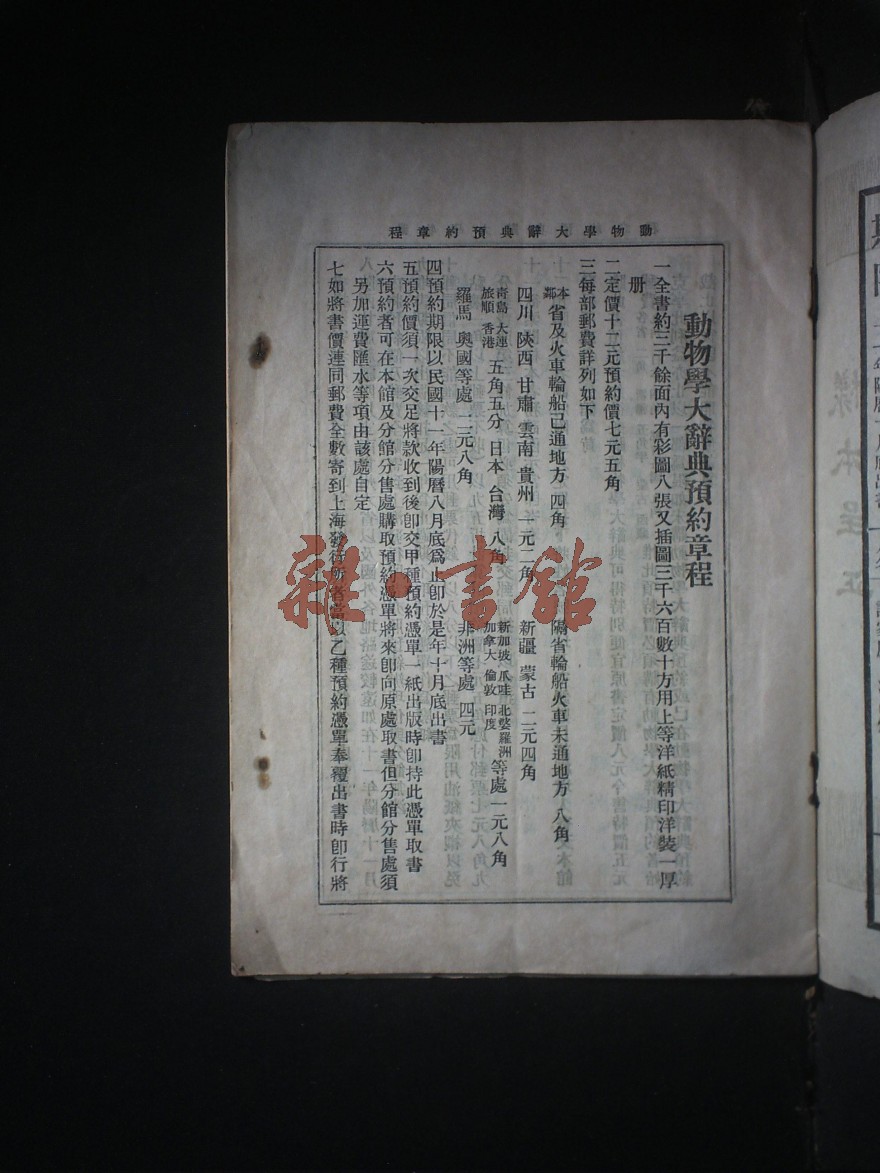 動物學大辭典預約章程
動物學大辭典預約章程
一全書約三千餘面內有彩圖八張又插圖三千六百數十方用上等洋紙精印洋裝一厚
册
二定價十二元預約價七元五角
三每部郵費詳列如下
本省及火車輪船已通地方 四角 隔省輪船火車未通地方 八角
鄰
四川 陝西 甘肅 雲南 貴州 一元二角 新疆 蒙古 二元四角
青島 大連 旅順 香港 五角五分 日本 台灣 八角 新加坡 爪哇 北婆羅洲 加拿大 倫敦 印度 等處一元八角
羅馬 奧國等處 二元八角 非洲等處 四元
四預約期限以民國十一年陽曆八月底爲止卽於是年十月底出書
五預約價須一次交足將款收到後卽交甲種預約憑單一紙出版時卽持此憑單取書
六預約者可在本館及分館分售處購取預約憑單將來卽向原處取書但分館分售處須
另加運費匯水等項由該處自定
七如將書價連同郵費全數寄到上海發行所者當以乙種預約憑單奉覆出書時卽行將
雜·書館